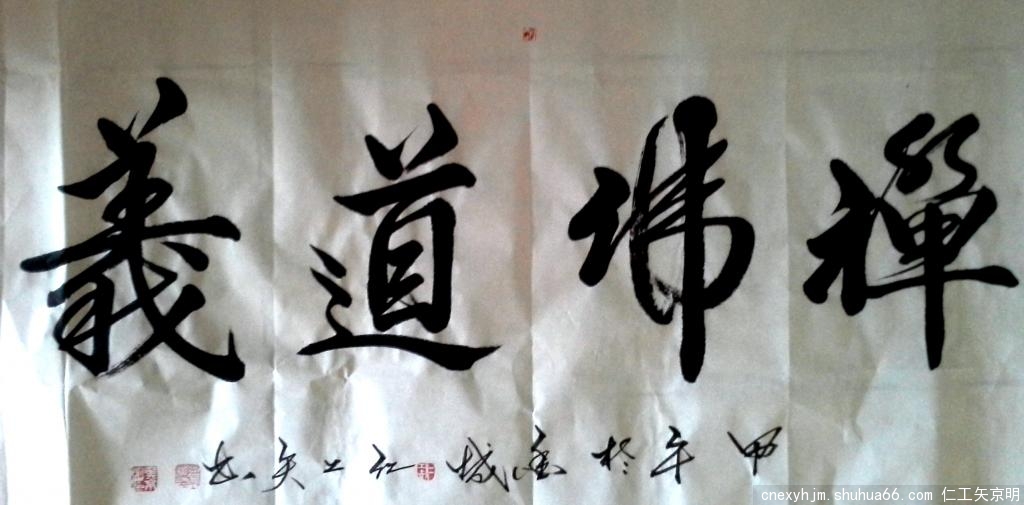 禪佛道義
甲午於金城仁工矢书
cnexyhjm.shuhua66.com 仁工矢京明